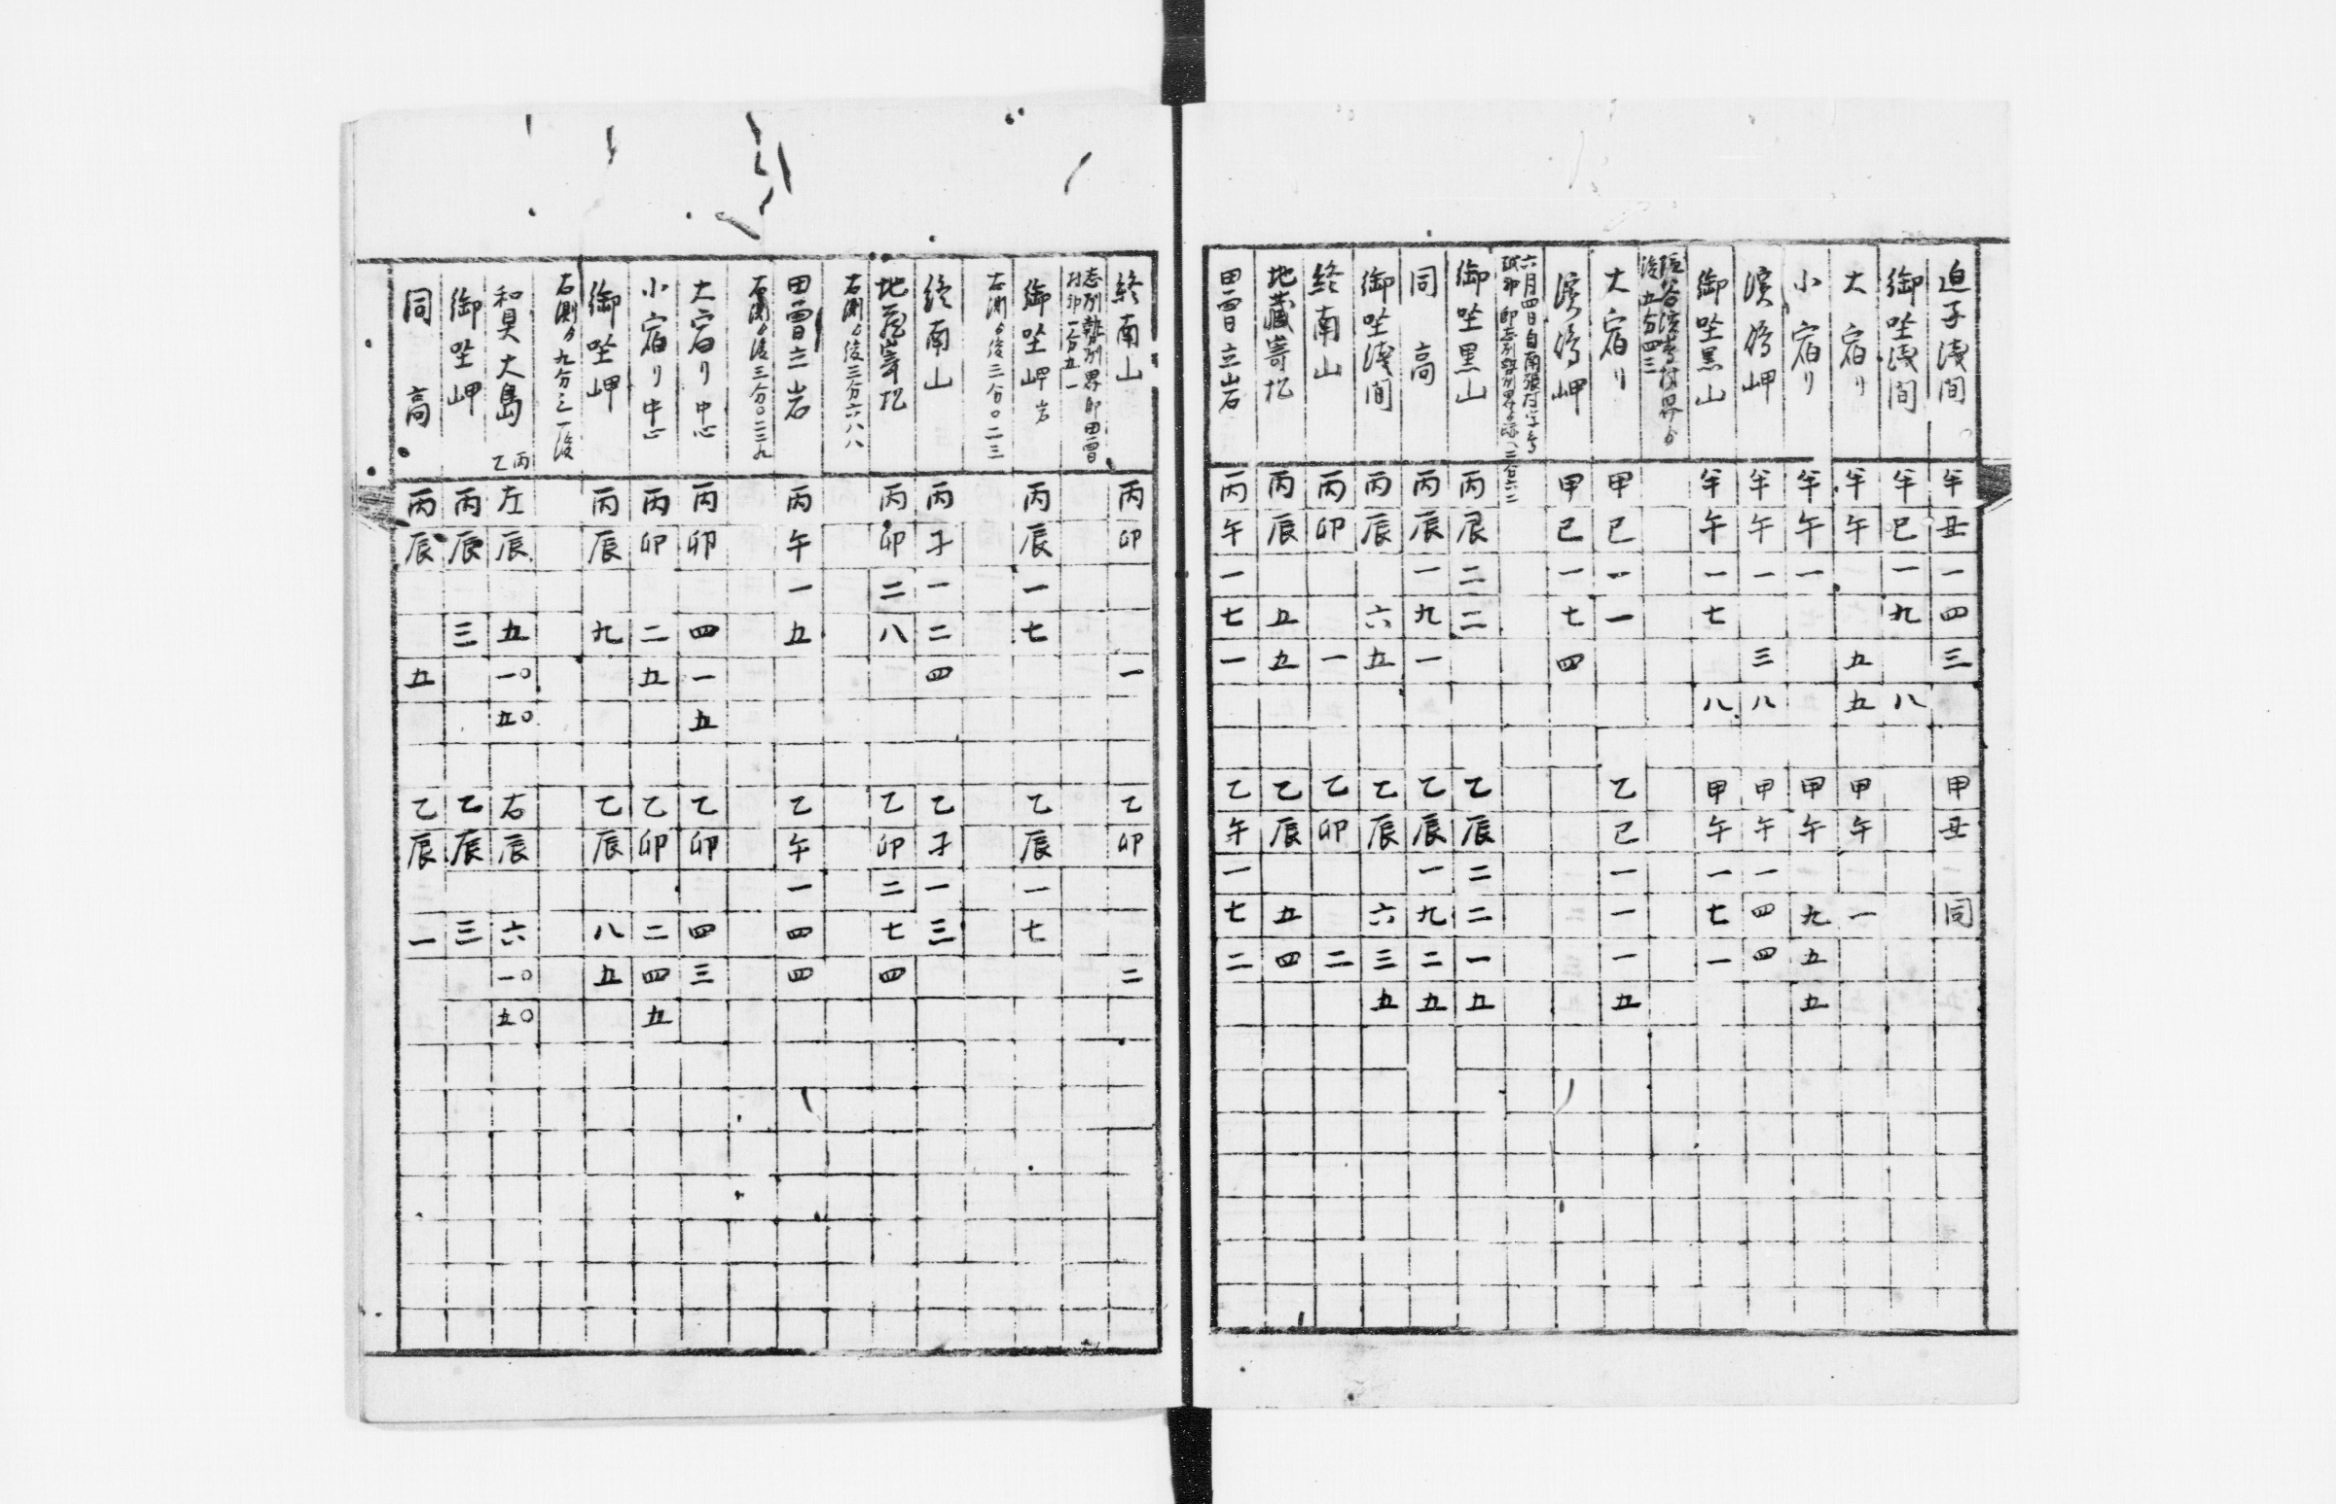 迫子浅間 半丑一四三 甲丑 同
御坐浅間 半巳一九 八
大宿リ 半午 五五 甲午 一
小宿リ 半午一 甲午 九五五
濱島岬 半午一 三八 甲午一四四
御坐黒山 半午一七 八 甲午一七一
後五分四三
大宿リ 甲巳一一 乙巳一一一五
濱島岬 甲巳一七四
御坐黒山 丙辰二二 乙辰二二一五
同高 丙辰一九一 乙辰一九二五
御坐浅間 丙辰 六五 乙辰 六三五
終南山 丙卯 一 乙卯 二
地藏嵜 丙辰 五五 乙辰 五四
田曽立岩 丙午一七一 乙午一七二
終南山 丙卯 一 乙卯 二
御坐岬岩 丙辰一七 乙辰一七
右測ゟ後三分〇二三
終南山 丙子一二四 乙子一三
地藏嵜 丙卯二八 乙卯二七四
右測ゟ後三分六八八
田曽立岩 丙午一五 乙午一四四
右測ゟ後三分〇二三九
大宿リ中心 丙卯 四一五 乙卯 四三
小宿リ中心 丙卯 二五 乙卯 二四五
御坐岬 丙辰 九 乙辰 八五
右測ゟ九分三一後
和具大島 丙乙 左辰 五一〇五〇 右辰 六一〇五〇
御坐岬 丙辰 三 乙辰 三
同高 丙辰 五 乙辰 一